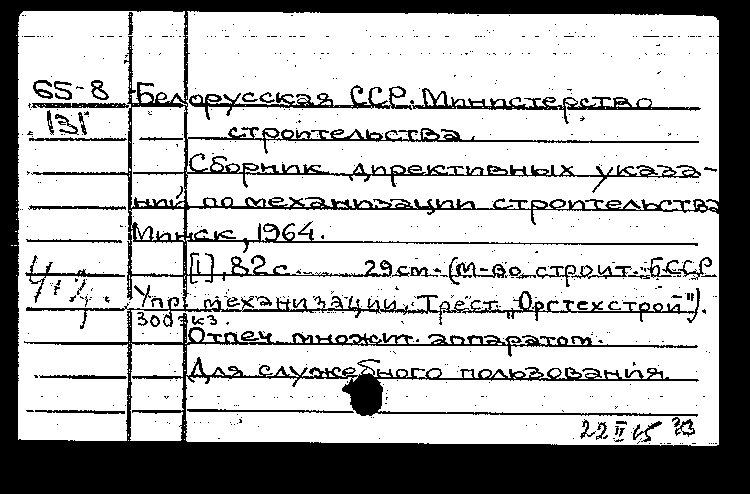 65-8 Белорусская ССР. Министерство
131 строительства.
Сборник директивных указа-
ний по механизации строительства
Минск, 1964.
[1], 82 с. 29 см. (М-во строит. БССР
Упр. механизации, Трест "Оргтехстрой").
300 экз.
Отпеч. множит. аппаратом.
Для служебного пользования.
22 II 65